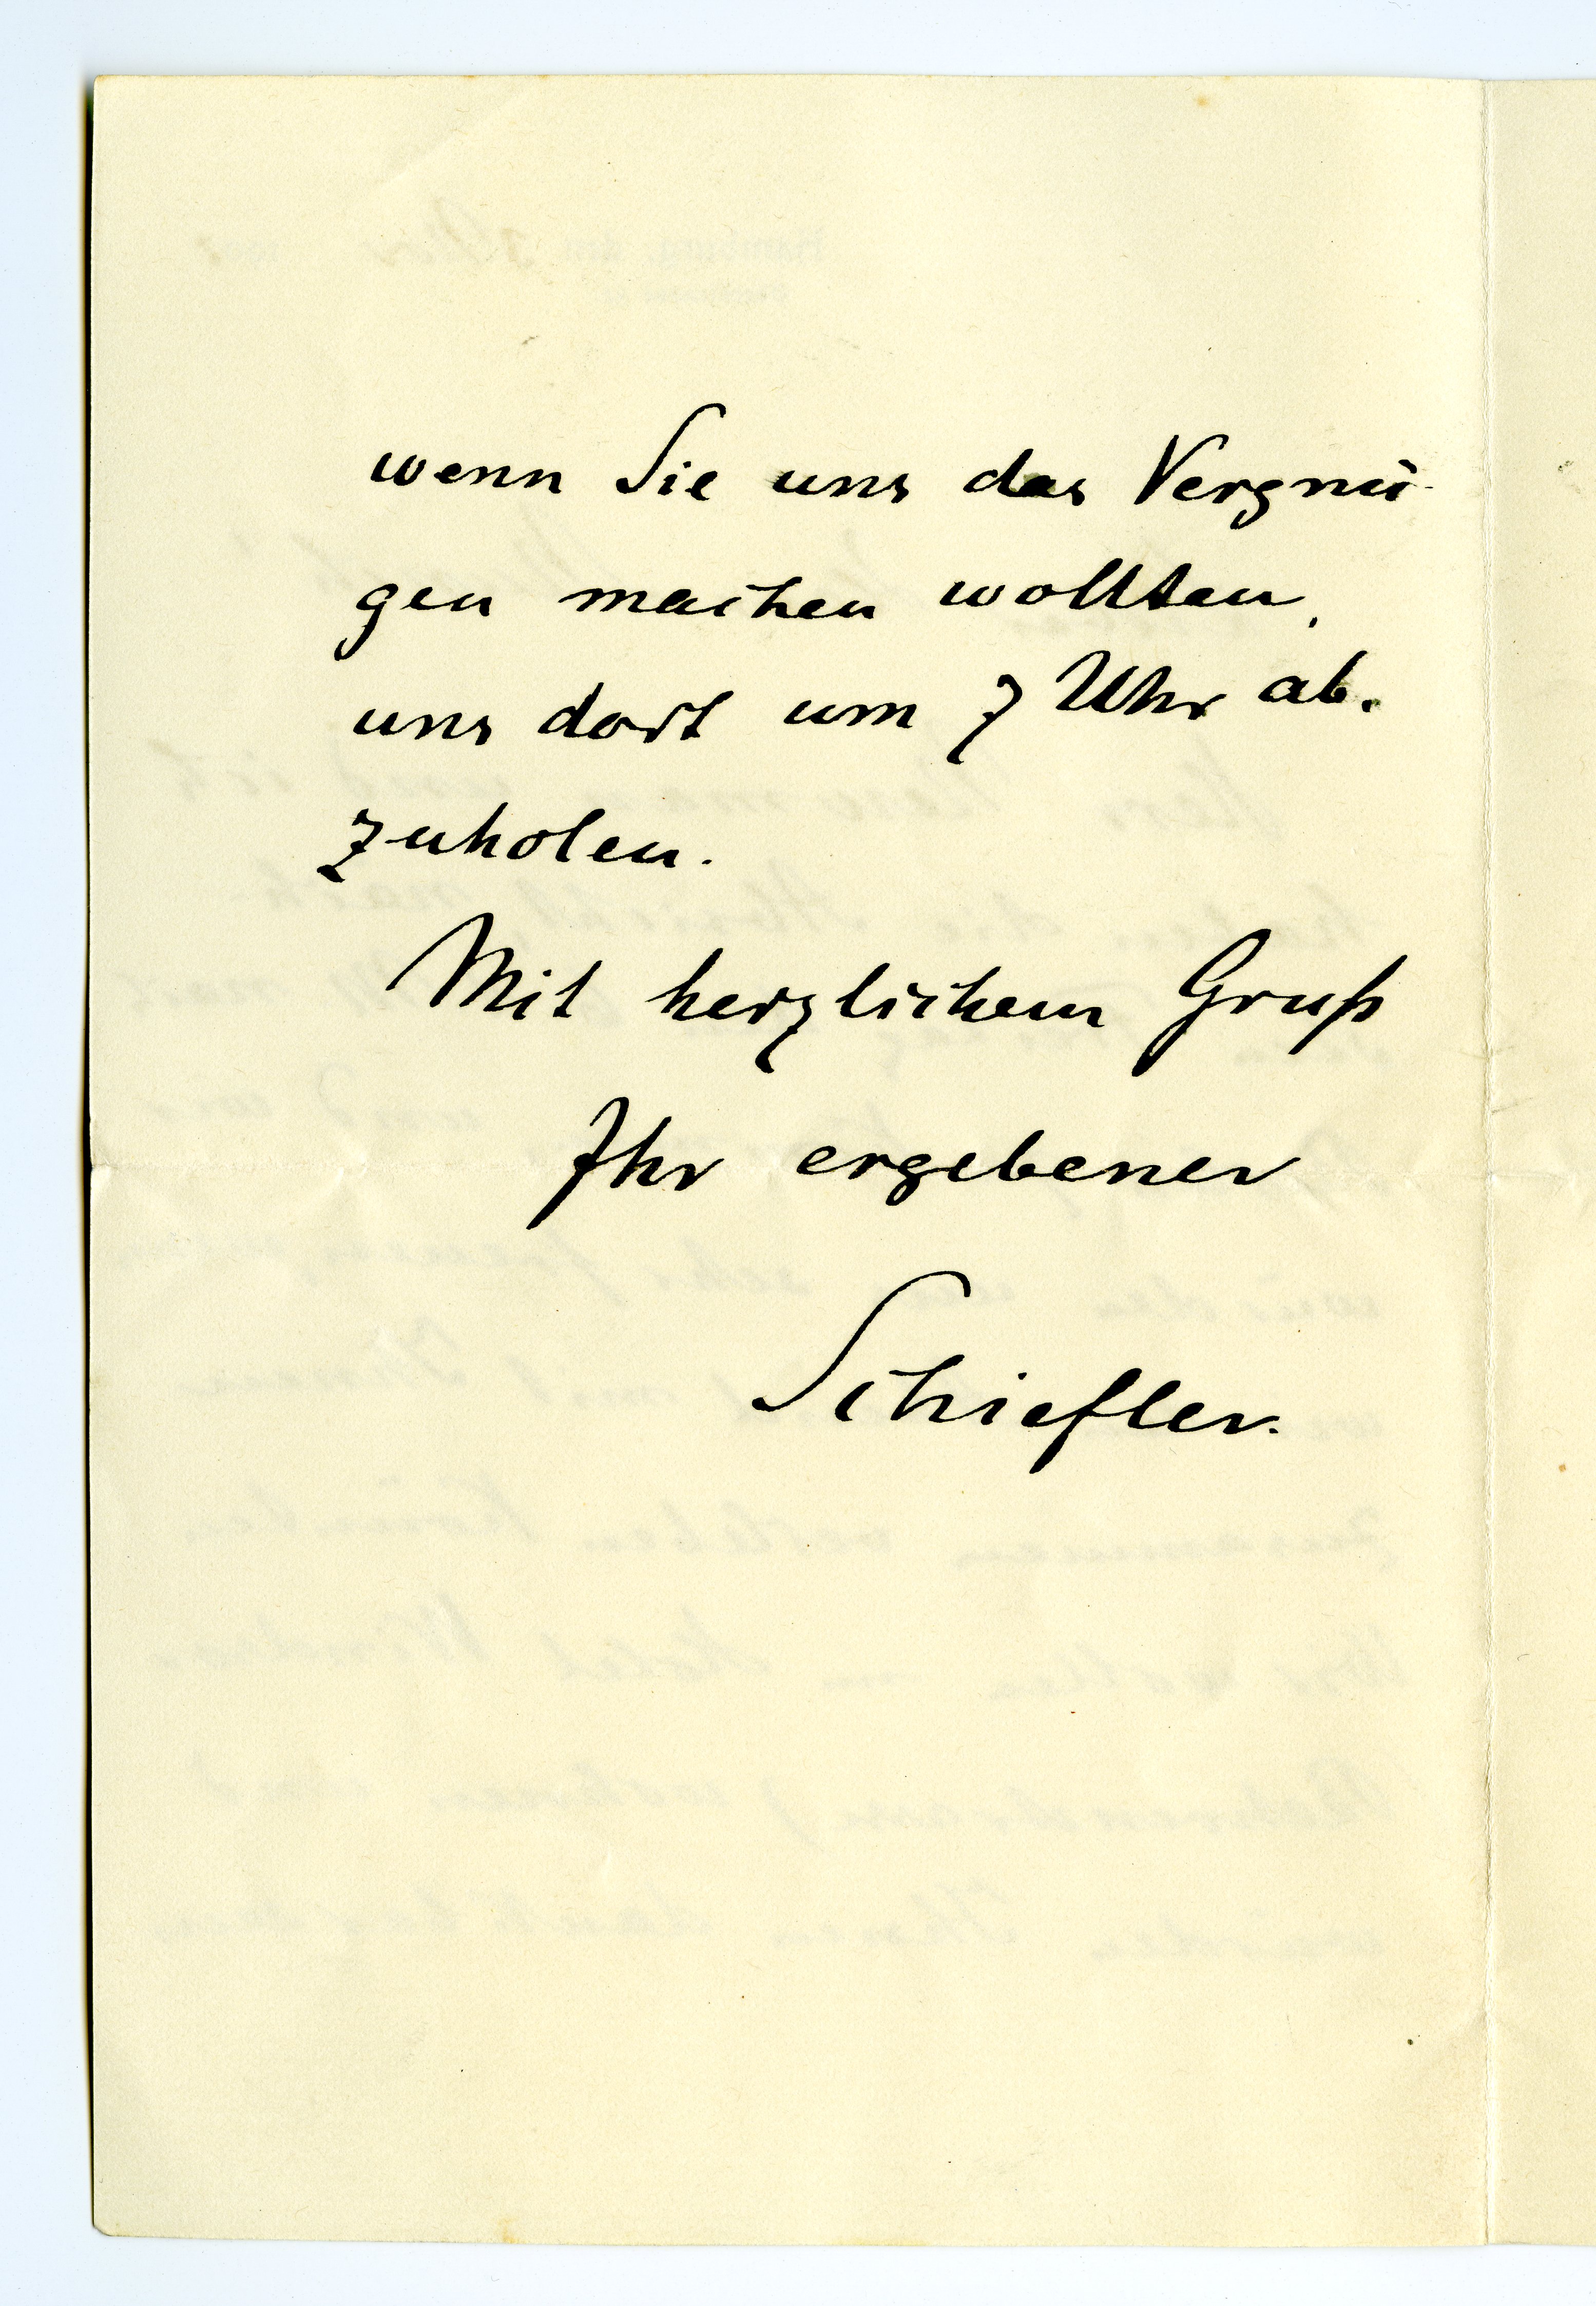 wenn Sie uns das Vergnü-
gen machen wollten,
uns dort um 7 Uhr ab-
zuholen.
Mit herzlichem Gruß
Ihr ergebener
Schiefler.